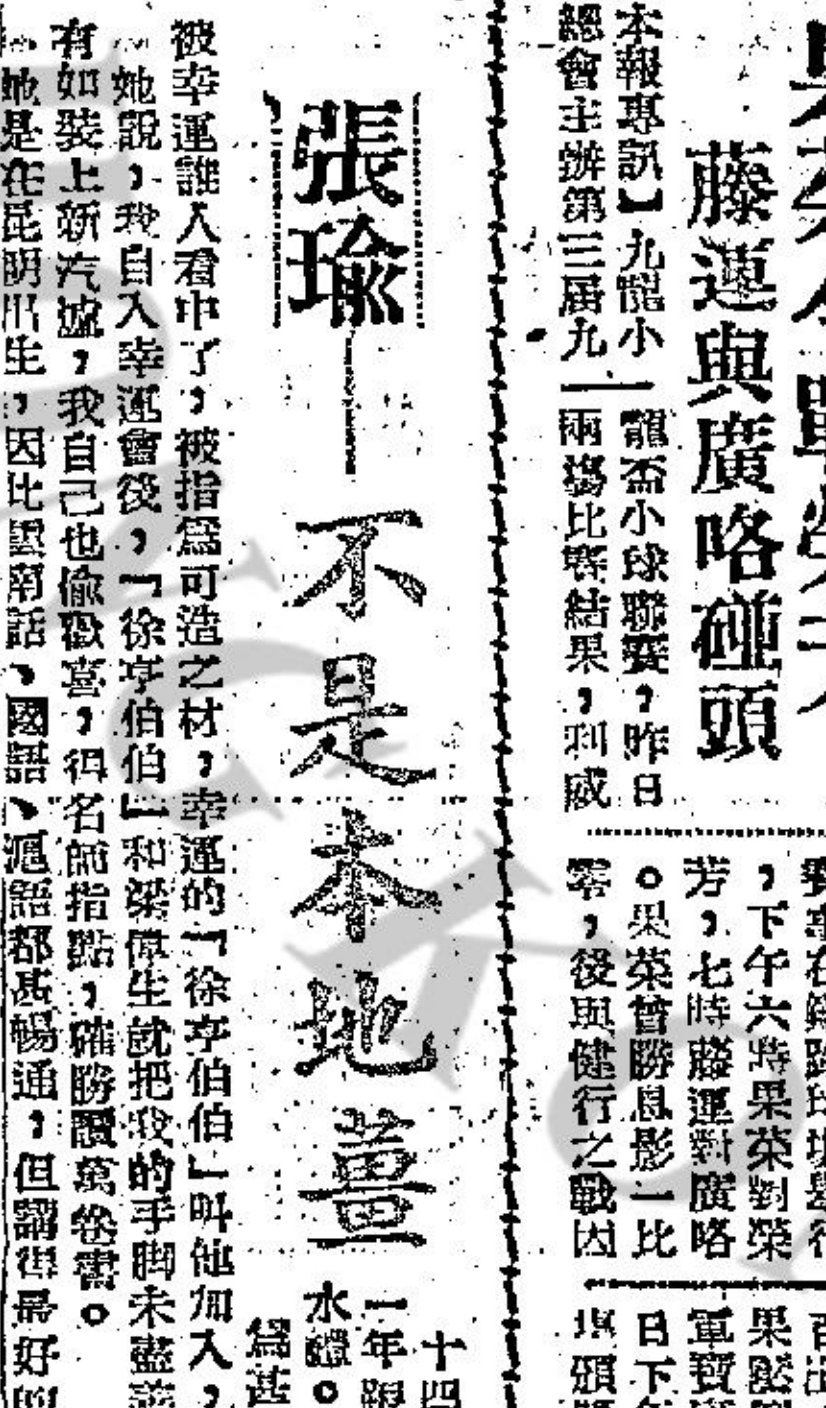 藤運與廣略碰頭
本報專訊】九龍小
總會主辦第三屆九
龍盃小球聯賽，昨日
兩場比賽結果，利威
，下午六時果菜對榮
芳，七時藤運對廣略
。果菜曾勝息影一比
零，後與健行之戰因
張瑜——不是本地薑
十四
一年
水體。
為甚
被幸運誰人看中了，被指為可造之材，幸運的「徐亨伯伯」叫他加入，
她說，我自入幸運會後，「徐亨伯伯」和梁偉生就把我的手脚未盡善
有如裝上新汽爐，我自己也偷歡喜，得名師指點，確勝讀萬卷書。
她是在昆明出生，因此雲南話、國語、滬語都甚暢通，但講得最好的